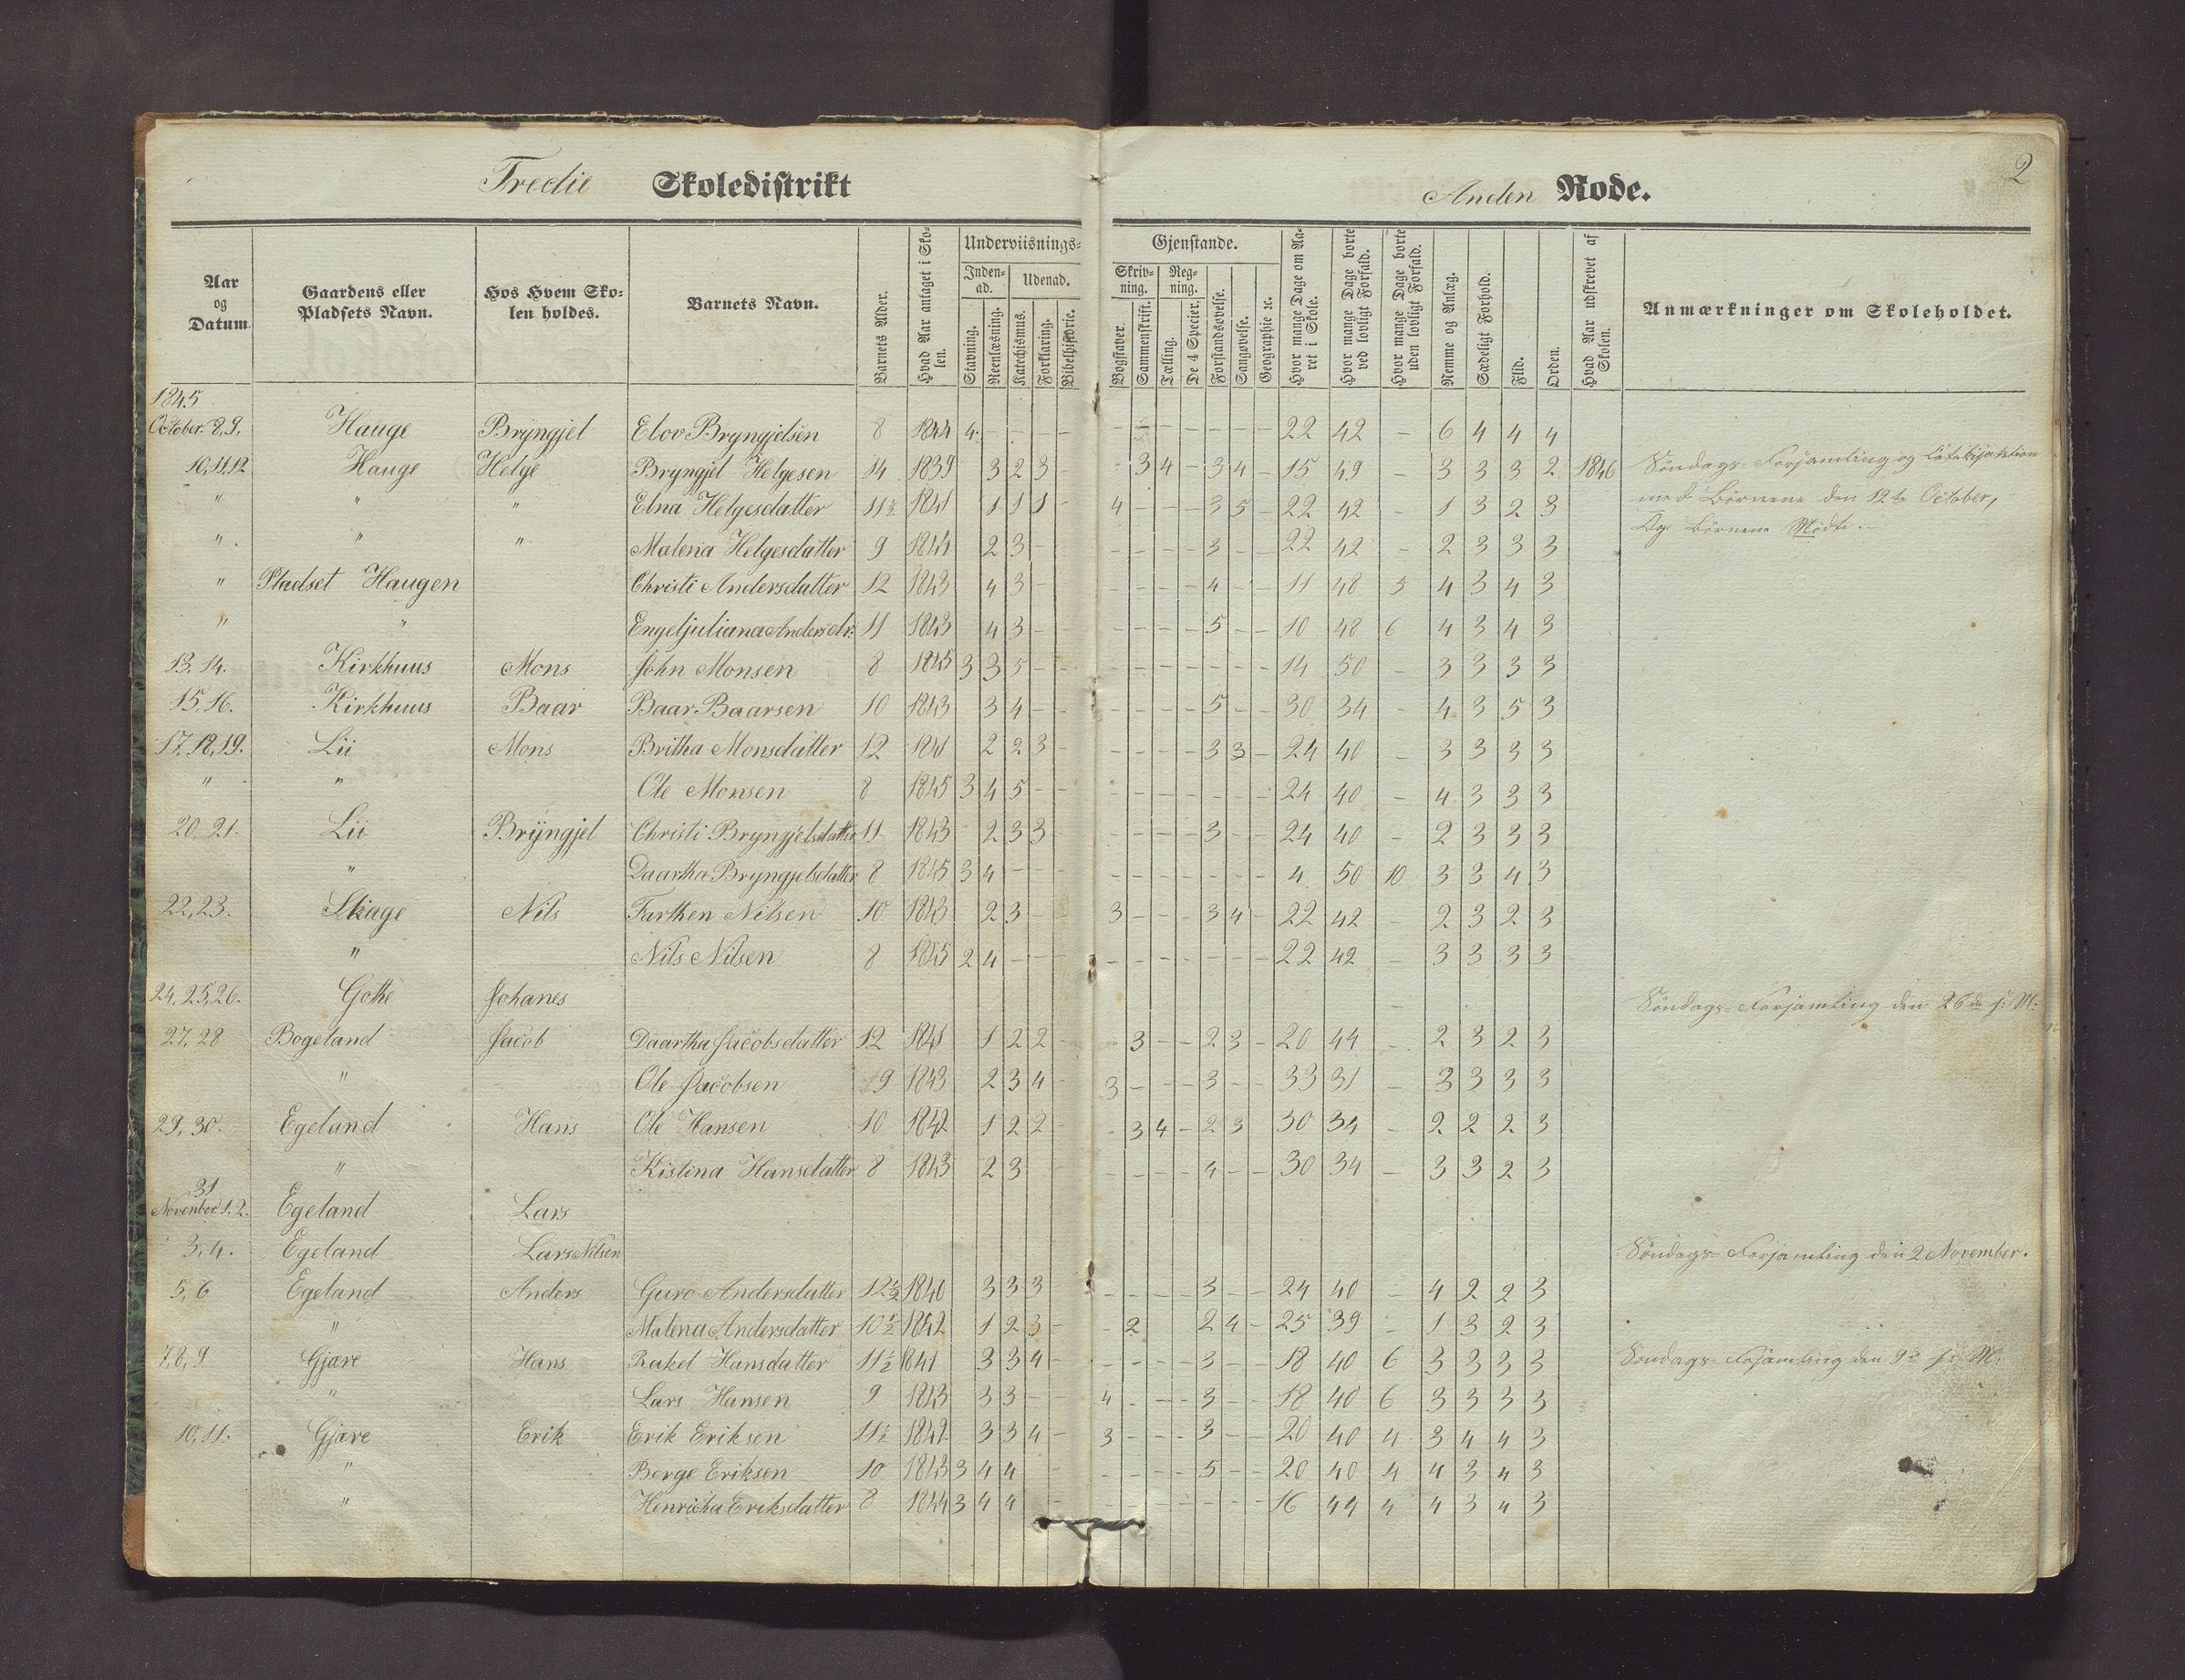 Tredie Skoledistrikt
Anden Rode.
2
Aar og Datum.
Gaardens eller Pladsets Navn.
Hos Hvem Skolen holdes.
Barnets Navn.
Barnets Alder.
Hvad Aar antaget i Skolen.
Underviisnings-
Inden-ad.
Udenad.
Stavning.
Reenlæsning.
Katechismus.
Forklaring.
Bibelhistorie.
Gjenstande.
Skriv-ning.
Reg-ning.
Bogstaver.
Sammenskrift.
Tælling.
De 4 Specier.
Forstandsøvelse.
Sangøvelse.
Geographie ꝛc.
Hvor mange Dage om Aaret i Skole.
Hvor mange Dage borte ved lovligt Forfald.
Hvor mange Dage borte uden lovligt Forfald.
Nemme og Anlæg.
Sædeligt Forhold.
Flid.
Orden.
Hvad Aar udskrevet af Skolen.
Anmærkninger om Skoleholdet.
1845
October. 8,9. Hauge Bryngjel Elov Bryngjelsen 8 1844 4 - - - - - - - - - - - 22 42 - 6 4 4 4
10,11,12 Hauge Helge Bryngjel Helgesen 14 1839 3 2 3 - - 3 4 - 3 4 - 15 49 - 3 3 3 2 1846 Söndags-Forsamling og Catekisation
" " " Elna Helgesdatter 11½ 1841 1 1 1 - 4 - - - 3 5 - 22 42 - 1 3 2 3 med Börnene den 12te October,
" " " Malena Helgesdatter 9 1844 2 3 - - - - - 3 - - 22 42 - 2 3 3 3 Og Börnene Mödte.-
" Pladset Haugen Christi Andersdatter 12 1843 4 3 - - - - - 4 - - 11 48 5 4 3 4 3
" " Engeljuliana Andersdr: 11 1843 4 3 - - - - - 5 - - 10 48 6 4 3 4 3
13, 14. Kirkhuus Mons John Monsen 8 1845 3 3 5 - - - - - - - - - 14 50 - 3 3 3 3
15, 16. Kirkhuus Baar Baar Baarsen 10 1843 3 4 - - - - - - 5 - - 30 34 - 4 3 5 3
17, 18, 19. Lii Mons Britha Monsdatter 12 1841 2 2 3 - - - - - 3 3 - 24 40 - 3 3 3 3
" " Ole Monsen 8 1845 3 4 5 - - - - - - - - - 24 40 - 4 3 3 3
20, 21. Lii Bryngjel Christi Bryngjelsdatter 11 1843 2 3 3 - - - - 3 - - 24 40 - 2 3 3 3
" Daartha Bryngjelsdatter 8 1845 3 4 - - - - - - - - - - 4 50 10 3 3 4 3
22, 23. Skage Nils Tarthen Nilsen 10 1843 2 3 - - 3 - - - 3 4 - 22 42 - 2 3 2 3
" Nils Nilsen 8 1845 2 4 - - - - - - - - - - 22 42 - 3 3 3 3
24, 25, 26. Gothe Johanes Söndags-Forsamling den 26de s: M:
27, 28 Bogeland Jacob Daartha Jacobsdatter 12 1841 1 2 2 - - 3 - - 2 3 - 20 44 - 2 3 2 3
" Ole Jacobsen 9 1843 2 3 4 - 3 - - - 3 - - 33 31 - 3 3 3 3
29, 30. Egeland Hans Ole Hansen 10 1842 1 2 2 - - 3 4 - 2 3 30 34 - 2 2 2 3
" Kistina Hansdatter 8 1843 2 3 - - - - 4 - - 30 34 - 3 3 2 3
31
November 1. 2. Egeland Lars
3, 4. Egeland Lars Nilsen Söndags-Forsamling den 2 November.
5, 6 Egeland Anders Guro Andersdatter 12½ 1840 3 3 3 - - - - - 3 - - 24 40 - 4 2 2 3
" Malena Andersdatter 10½ 1842 1 2 3 - - 2 2 4 - 25 39 - 1 3 2 3
7, 8, 9 Gjære Hans Rakel Hansdatter 11½ 1841 3 3 4 - - - - - 3 - - 18 40 6 3 3 3 3 Söndags-Forsamling den 9de s: M:
" Lars Hansen 9 1843 3 3 - - 4 - - - 3 - - 18 40 6 3 3 3 3
10, 11. Gjære Erik Erik Eriksen 11½ 1842 3 3 4 - 3 - - - 3 - - 20 40 4 3 4 4 3
" Berge Eriksen 10 1843 3 4 4 - - - - - 5 - - 20 40 4 4 3 4 3
" Henricha Eriksdatter 8 1844 3 4 4 - - - - - - - - 16 44 4 4 3 4 3